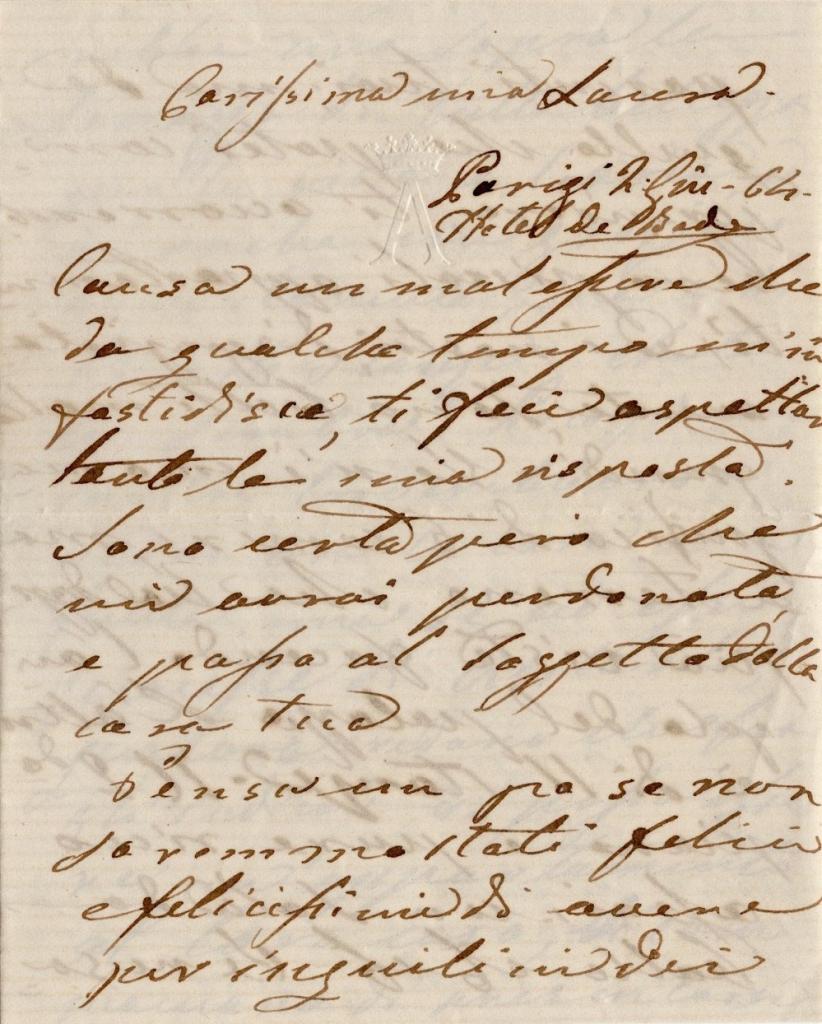 Carissima mia Laura.
Parigi 2. Giu - 64.
Hotel de Bade
Causa un mal essere che
da qualche tempo m'in
fastidisce, ti feci aspettar
tanto la mia risposta.
Sono certa però che
mi avrai perdonata,
e passo al soggetto della
cara tua
Pensa un po se non
saremmo stati felici
e felicissimi di avere
per inquilini dei
A